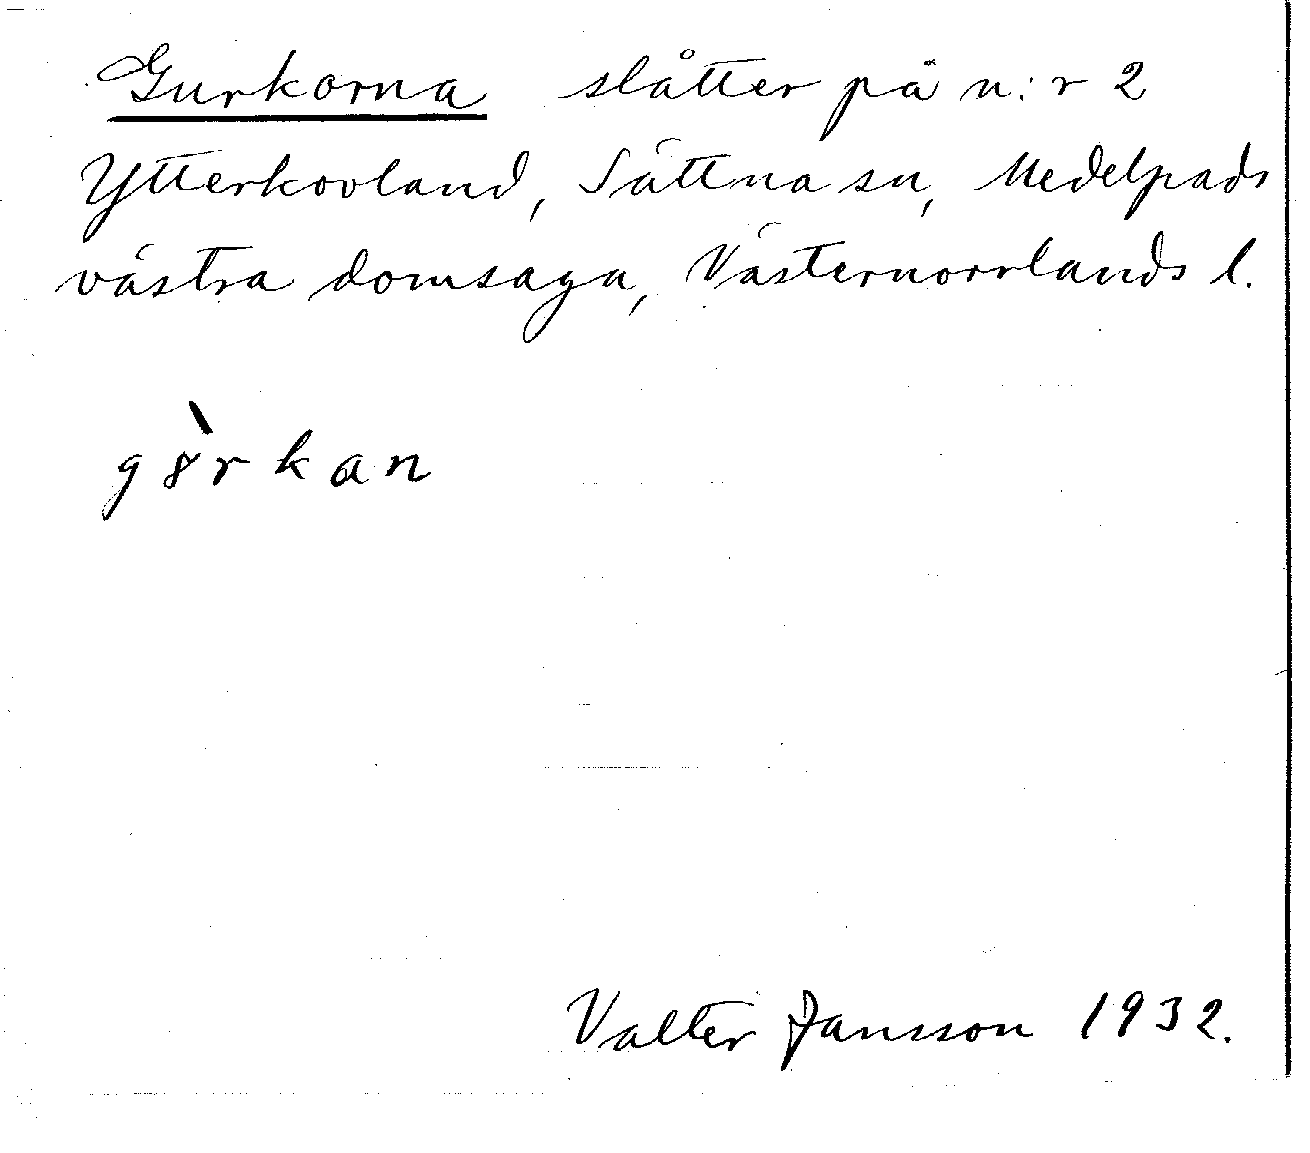 Gurkorna slåtter på n:r 2
Ytterkovland, Sättna sn, Medelpads
västra domsaga, Västernorrlands l.
gɤ̀rkan
Valter Jansson 1932.